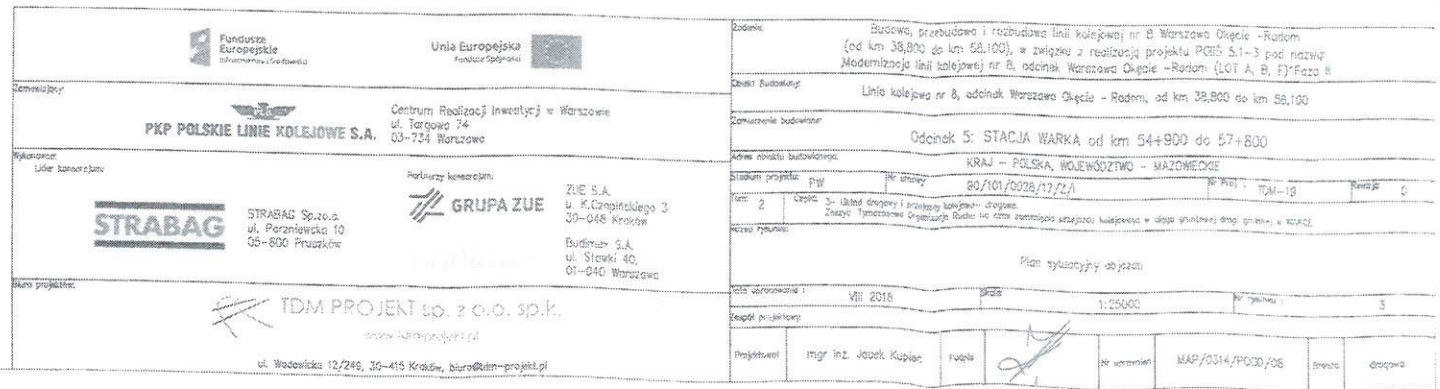 Fundusze
Europejskie
Infrastruktura i Środowisko
Unia Europejska
Fundusz Spójności
Zamawiający:
PKP POLSKIE LINIE KOLEJOWE S.A.
Centrum Realizacji Inwestycji w Warszawie
ul. Targowa 74
03-734 Warszawa
Wykonawca:
Lider konsorcjum:
STRABAG
STRABAG Sp.zo.o.
ul. Parzniewska 10
05-800 Pruszków
Partnerzy konsorcjum:
GRUPA ZUE
ZUE S.A.
u. K.Czapińskiego 3
30-048 Kraków
Budimex S.A.
ul. Stawki 40,
01-040 Warszawa
Biuro projektów:
TDM PROJEKT sp. z o.o. sp.k.
www.tdm-projekt.pl
ul. Wadowicka 12/249, 30-415 Kraków, biuro@tdm-projekt.pl
Zadanie:
Budowa, przebudowa i rozbudowa linii kolejowej nr 8 Warszawa Okęcie -Radom
(od km 38,800 do km 58,100), w związku z realizacją projektu POIiŚ 5.1-3 pod nazwą:
Modernizacja linii kolejowej nr 8, odcinek Warszawa Okęcie -Radom (LOT A, B, F)"Faza II
Obiekt Budowlany:
Linia kolejowa nr 8, odcinek Warszawa Okęcie - Radom, od km 38,800 do km 58,100
Zamierzenie budowlane:
Odcinek 5: STACJA WARKA od km 54+900 do 57+800
Adres obiektu budowlanego:
KRAJ - POLSKA, WOJEWÓDZTWO - MAZOWIECKIE
Stadium projektu: PW Nr umowy 90/101/0028/17/Z/I Nr Proj.: TDM-19 Rewizja: 0
Tom: 2 Część: 3- Układ drogowy i przejazdy kolejowo- drogowe.
Zeszyt: Tymczasowa Organizacja Ruchu na czas zamknięcia przejazdu kolejowego w ciągu gruntowej drogi gminnej w WARCE
Nazwa rysunku:
Plan sytuacyjny objazdu
Data opracowania : VIII 2018 Skala 1:25000 Nr rysunku : 3
Zespół projektowy:
Projektował mgr inż. Jacek Kupiec Podpis Nr uprawnień MAP/0314/POOD/08 Branża drogowa